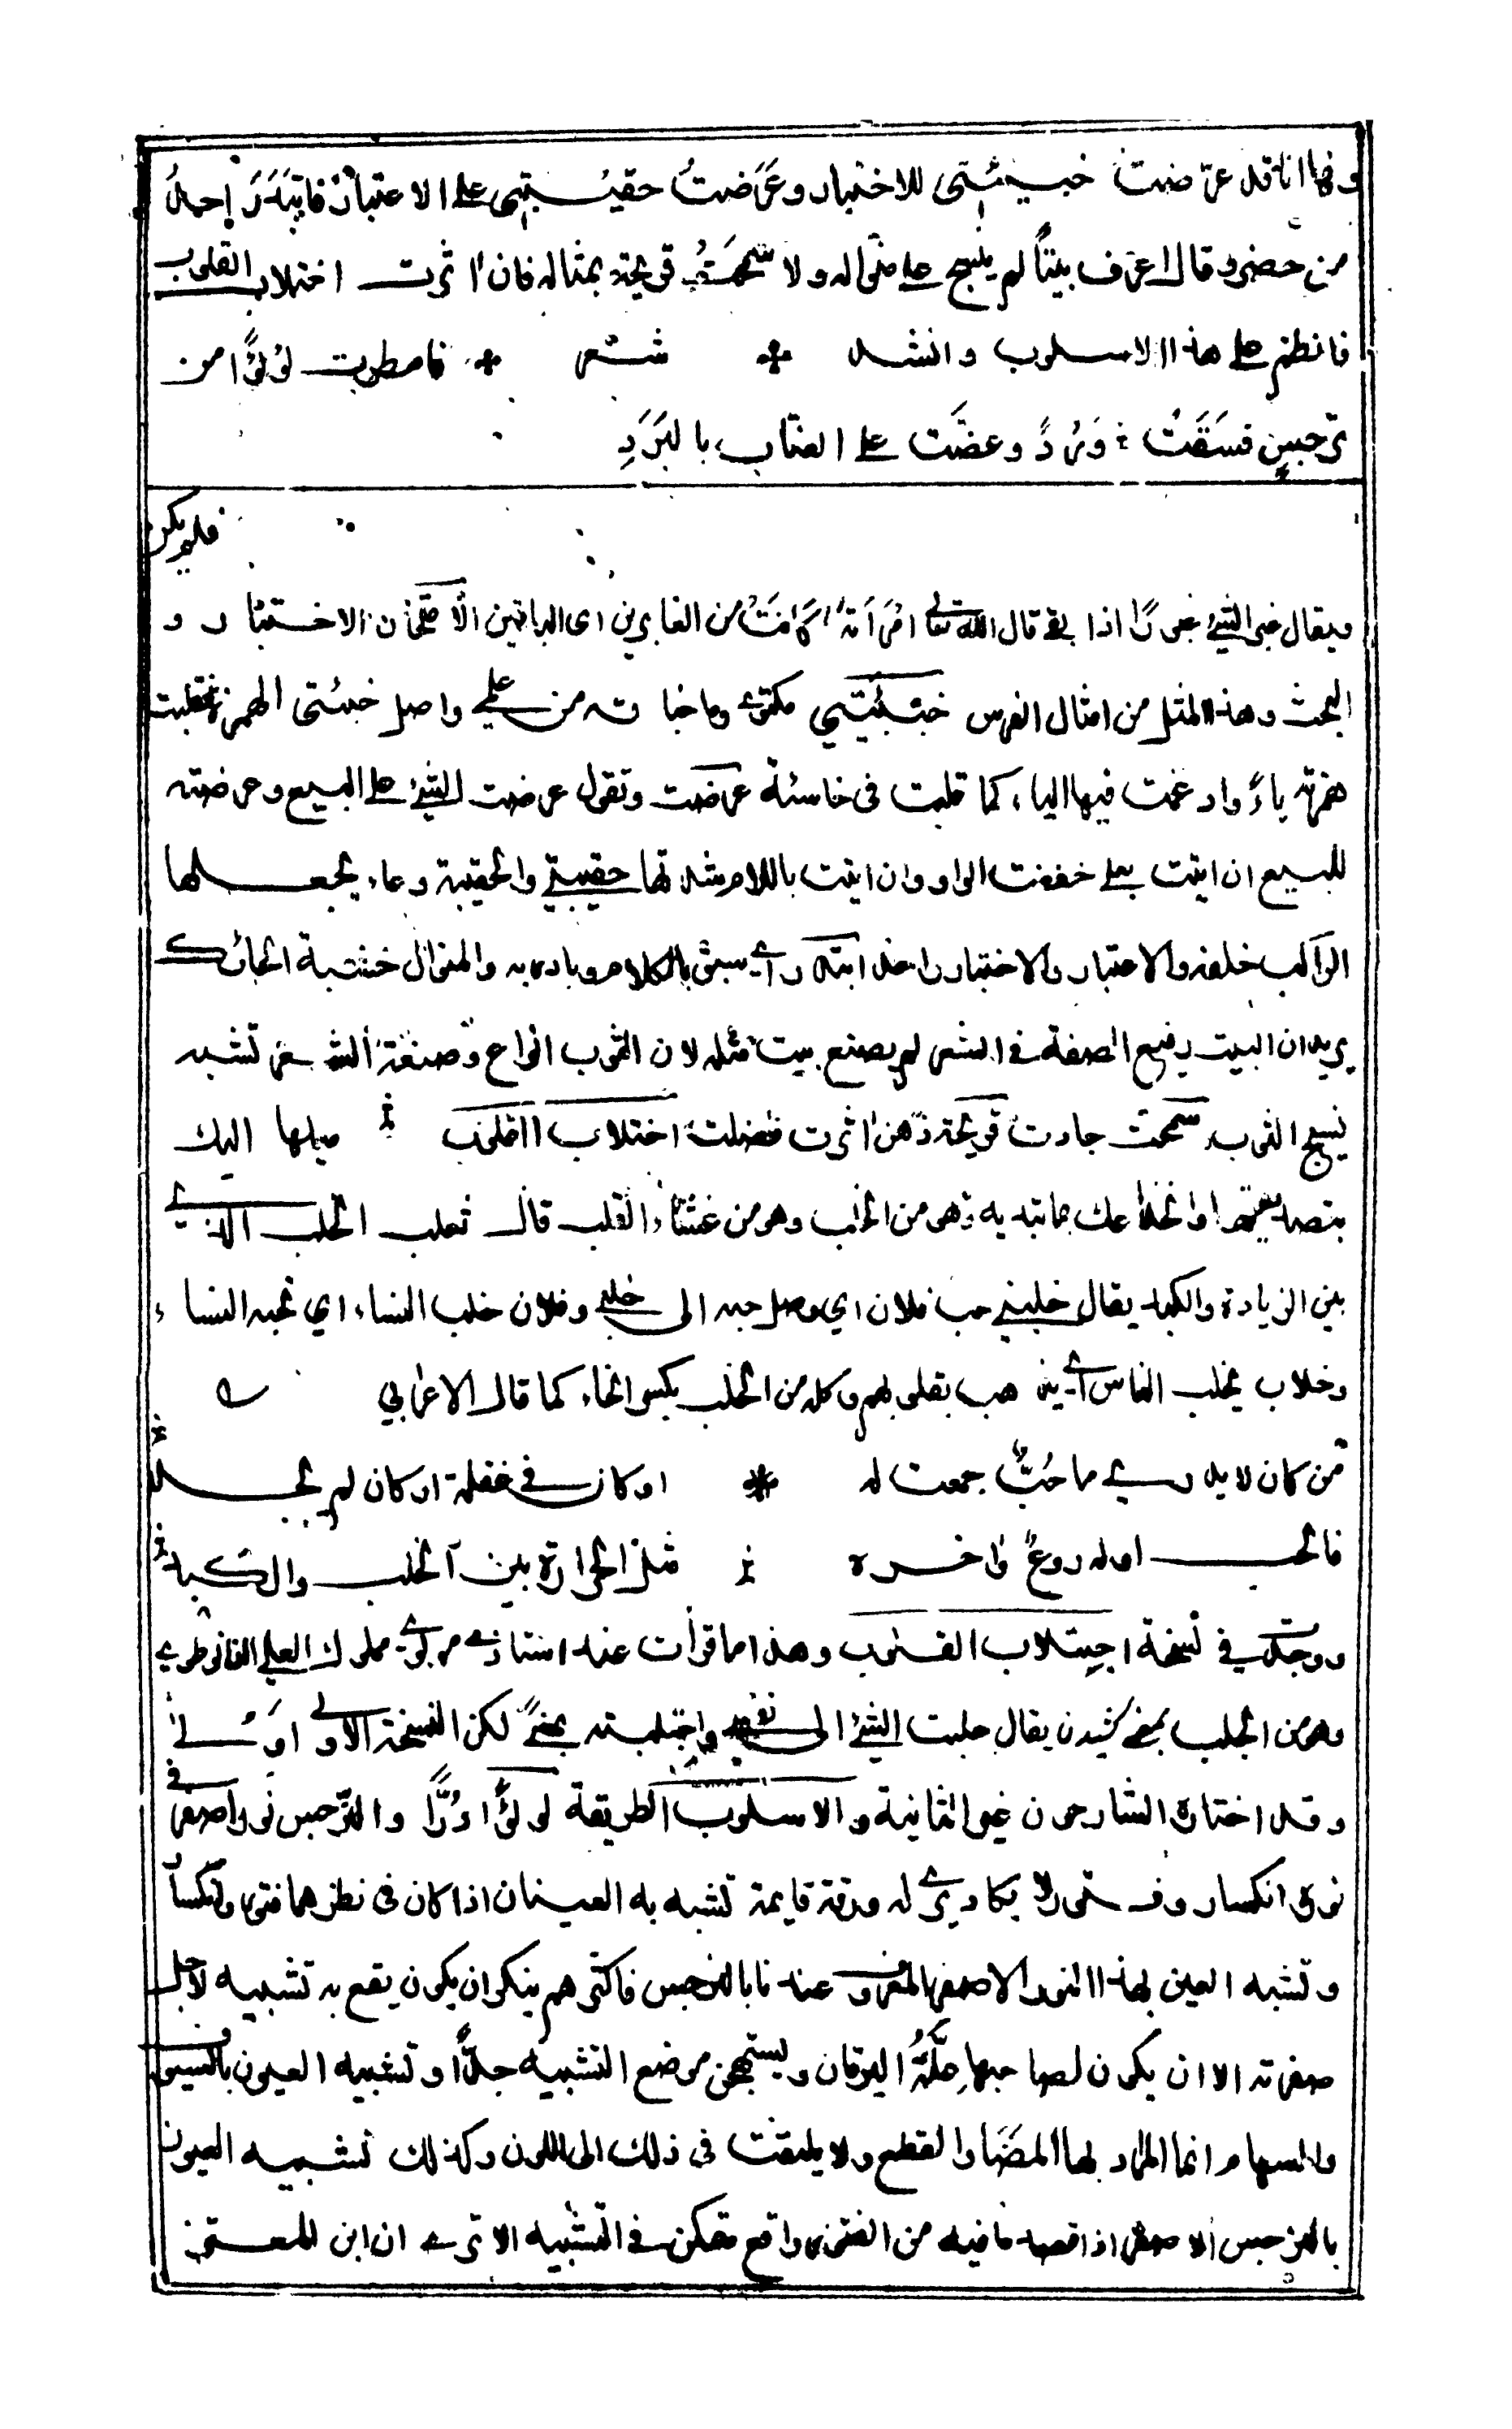 وها انا قد عرّضت خبيئتي للاختبار وعَرَضتُ حقيبتي على الاعتبار فابتَدَرَ احدُ
من حضر وقال اعرف بيتًا لم ينسج على منواله ولا سَمَحَتْ قريحة بمثاله فان اثرت اختلاب القلوب
فانظم على هذا الاسلوب وانشد * شعر * فامطرت لؤلؤًا من
نرجسٍ فسَقَتْ وَردًا وعضّت على العناب بالبَرَدِ
فلم يكن
ويقال غبر الشيء غبورًا اذا بقي قال الله تعالى امْرَأتَهُ كَانَتْ من الغابرين اى الباقين الامتحان الاختبار و
البحث وهذا المثل من امثال الفرس خبيئتي مكتومي وما خبأته من علمي واصل خبيئتي الهمزة فقلبت
همزته ياءً وادغمت فيها الياء كما قلبت فى خاسئة عرضت وتقول عرضت الشيء على البيع وعرضته
للبيع ان اتيت بعلى خففت الراء وان اتيت باللام شددتها حقيبتي والحقيبة وعاء يجعلها
الراكب خلفه والاعتبار والاختبار واحد ابتدر اي سبق بالكلام وبادر به والمنوال خشبة الحائك
يريد ان البيت رفيع الصفة فى الشعر لم يصنع بيت مثله لان الثوب انواع وصنعة الشعر تشبه
نسج الثوب سمحت جادت قريحة ذهن اثرت فضلت اختلاب القلوب ميلها اليك
او انخداعك بما تبديه وهو من الخلب وهو من غشاء القلب قال ثعلب الخلب الذي
بين الزيادة والكبد يقال خلبني حب فلان اي وصل حبه الى خلبي وفلان خلب النساء اي تحبه النساء
وخلاب يخلب الناس اي يذهب بقلوبهم وكله من الخلب بكسر الخاء كما قال الاعرابي
من كان لا يدري ما حُبٌّ جمعت له * او كان في غفلة او كان لم يجد
فالحب اوله روعٌ واخره مثل الحرارة بين الخلب والكبد
ووجدت في نسخة اجتلاب القلوب وهذا ما قرأت عند استاذي مولوي مملوك العلي النانوطوي
وهو من الجلب بمعنى كشيدن يقال جلبت الشيء الى نفسي واجتلبته بمعنًى لكن النسخة الاولى اولى
وقد اختاره الشارحون غير الثانية والاسلوب الطريقة لؤلؤًا دُرًّا والنرجس نور اصفر في
نوره انكسار وفتور لا يكاد يرى له ورقة قايمة تشبه به العينان اذا كان فى نظرهما فتور وانكسار
وتشبه العين بهذا النور الاصفر المعروف عندنا بالنرجس فاكثرهم ينكر ان يكون يقع به تشبيه لاجل
صفرته الا ان يكون لصاحبها عِلّةُ اليرقان ويستهجن موضع التشبيه جدًّا وتشبيه العيون بالسيوف
والسهام انما المراد بها المضاء والقطع ولا يلتفت فى ذلك الى اللون وكذلك تشبيه العيون
بالنرجس الاصفر اذا قصد ما فيه من الفتور واقع متمكن في التشبيه الا ترى ان ابن المعتز